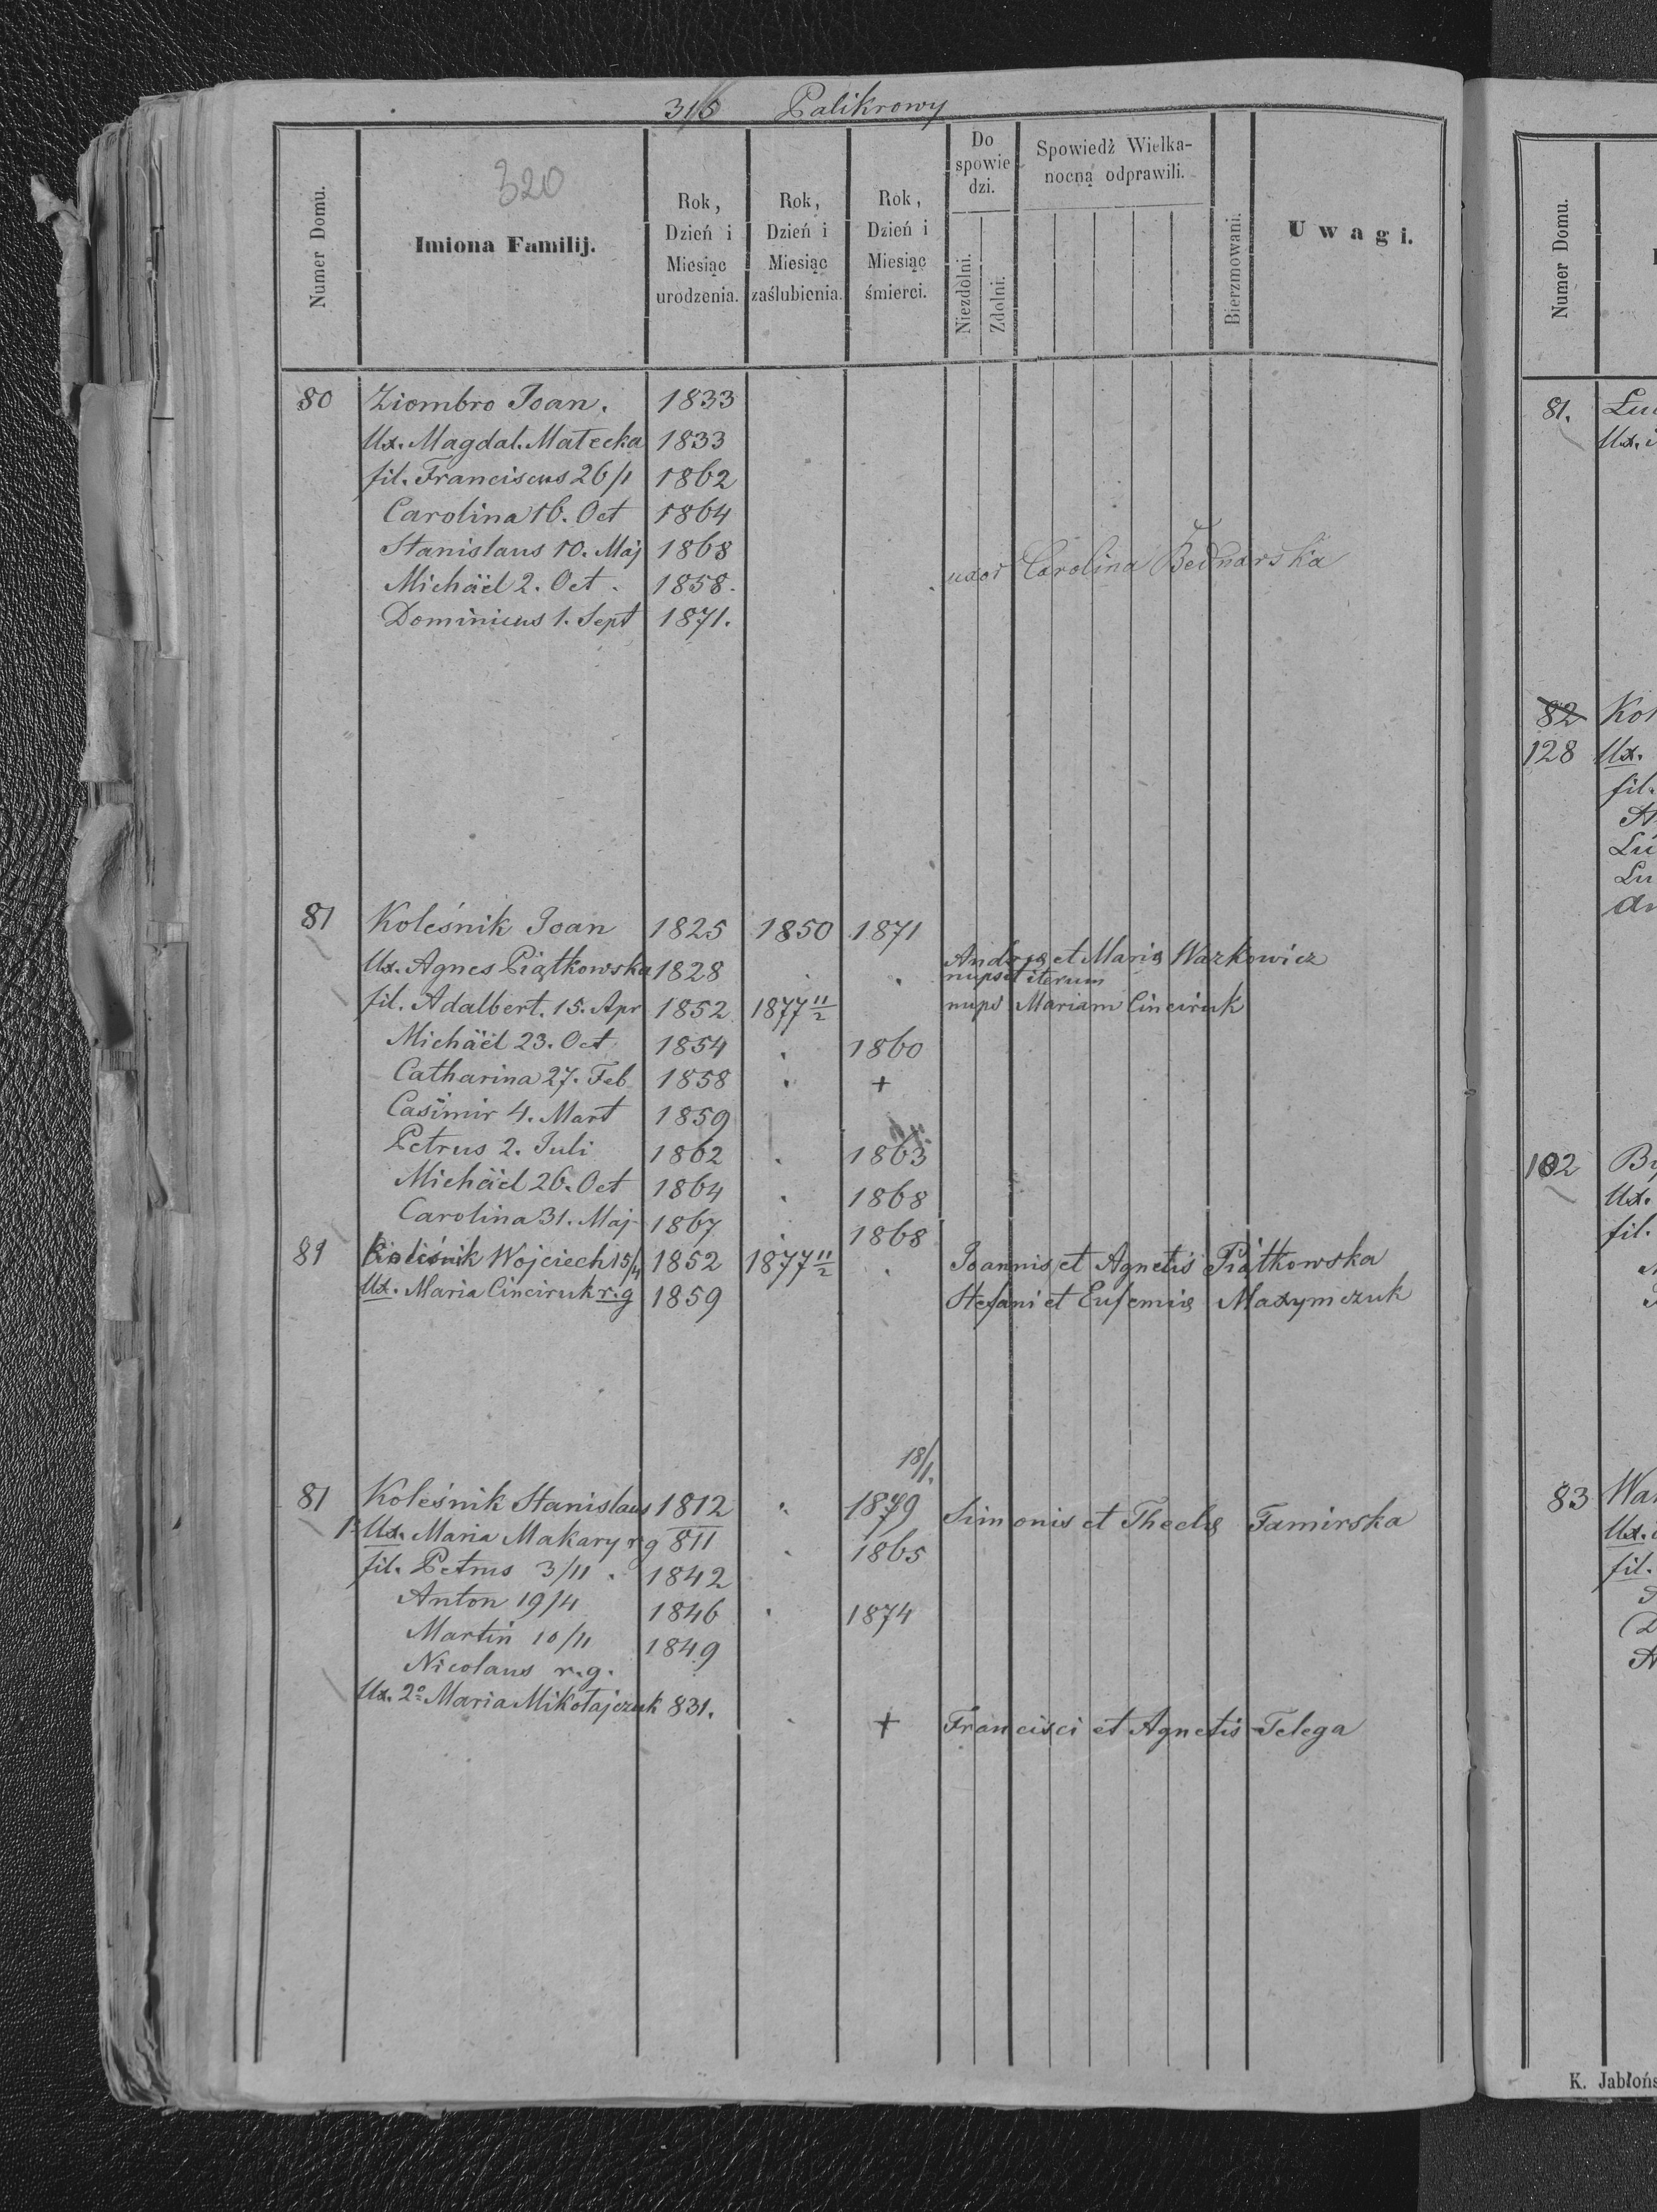 315 Palikrowy
320
Numer Domu.
Imiona Familij.
Rok, Dzień i Miesiąc urodzenia.
Rok, Dzień i Miesiąc zaślubienia.
Rok, Dzień i Miesiąc śmierci.
Do spowiedzi.
Niezdolni.
Zdolni.
Spowiedź Wielkanocną odprawili.
Bierzmowani.
Uwagi.
80 Ziombro Joan. 1833
Ux. Magdal. Małecka 1833
fil. Franciscus 26/1 1862
Carolina 16. Oct 1864
Stanislaus 10. Maj 1868
uxor Carolina Bednarska
Michäel 2. Oct. 1858.
Dominicus 1. Sept 1871.
81 Koleśnik Joan 1825 1850 1871
Ux. Agnes Piątkowska 1828 Andreę et Marię Warkowicz
nupsit iterum
fil. Adalbert. 15. Apr 1852 1877 11/2 nups Mariam Cinciruk
Michäel 23. Oct 1854 1860
Catharina 27. Feb 1858 +
Casimir 4. Mart 1859
Petrus 2. Juli 1862 1863
Michäel 26. Oct 1864 1868
Carolina 31. Maj 1867 1868
81 Koleśnik Wojciech 15/4 1852 1877 11/2 Joannis et Agnetis Piątkowska
Ux. Maria Cinciruk r.g 1859 Stefani et Eufemię Maxymczuk
18/1.
81 Koleśnik Stanislaus 1812 1879 Simonis et Theclę Tamirska
1º Ux. Maria Makary rg 811 1865
fil. Petrus 3/11. 1842
Anton 19/4 1846 1874
Martin 10/11 1849
Nicolaus r.g.
Ux. 2º Maria Mikołajczuk 831. + Francisci et Agnetis Telega
Numer Domu.
81.
Ux.
82
128
Ux.
fil.
102
Ux.
fil.
83
Ux.
fil.
K. Jabłońs